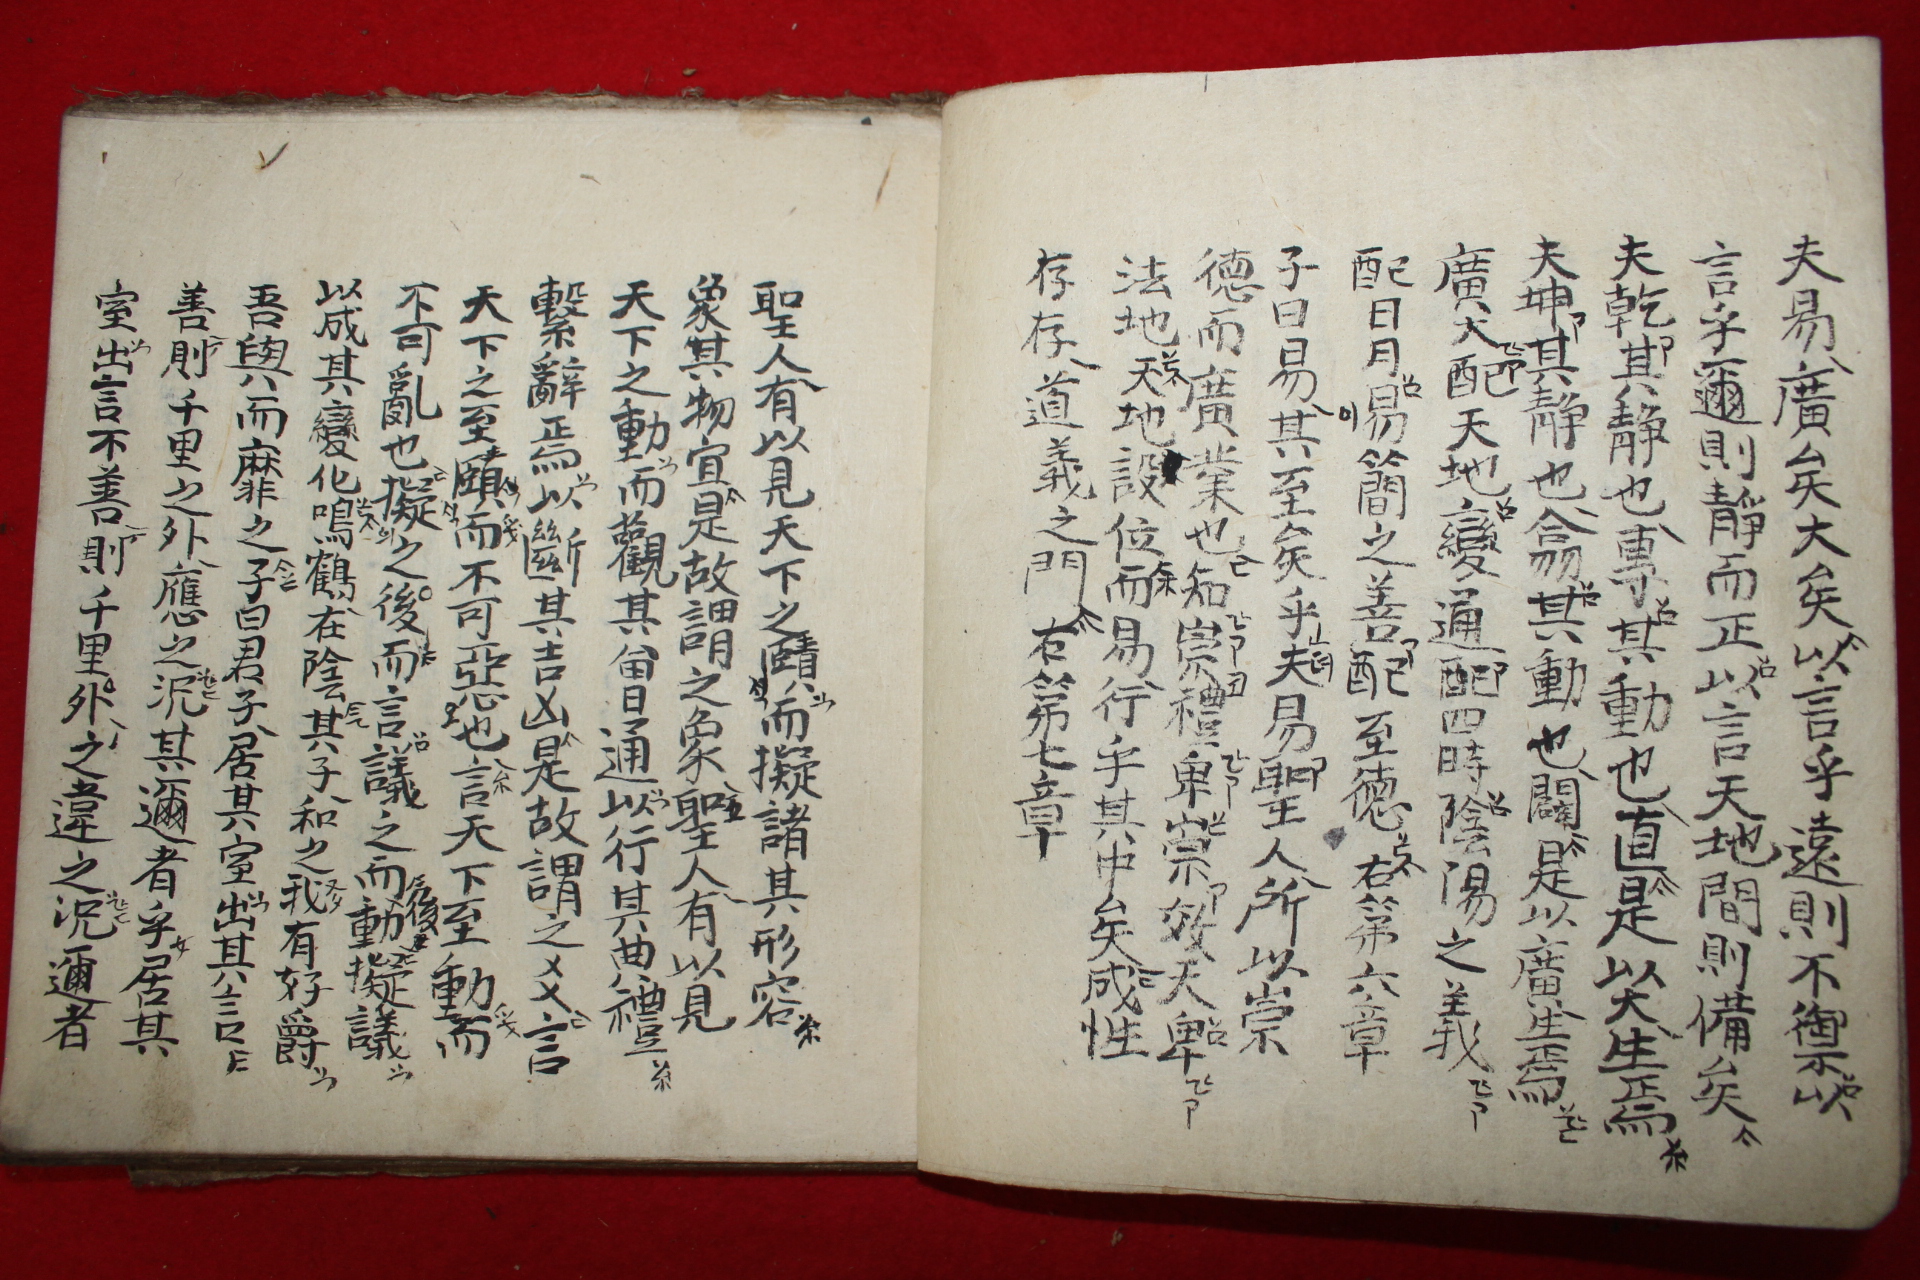 夫易廣矣大矣以言乎遠則不禦以
言乎邇則静而正以言天地間則備矣
夫乾其静也專其動也直是以大生焉
夫坤其静也翕其動也闢是以廣生焉
廣大配天地變通配四時陰陽之義
配日月易簡之善配至德右第六章
子曰易其至矣乎夫易聖人所以崇
德而廣業也知崇禮卑崇效天卑
法地天地設位而易行乎其中矣成性
存存道義之門右第七章
聖人有以見天下之賾而擬諸其形容
象其物宜是故謂之象聖人有以見
天下之動而觀其會通以行其典禮
繫辭焉以斷其吉凶是故謂之爻言
天下之至賾而不可惡也言天下至動而
不可亂也擬之後而言議之而後動擬議
以成其變化鳴鶴在陰其子和之我有好爵
吾與而靡之子曰君子居其室出其言
善則千里之外應之況其邇者乎居其
室出言不善則千里外之違之況邇者